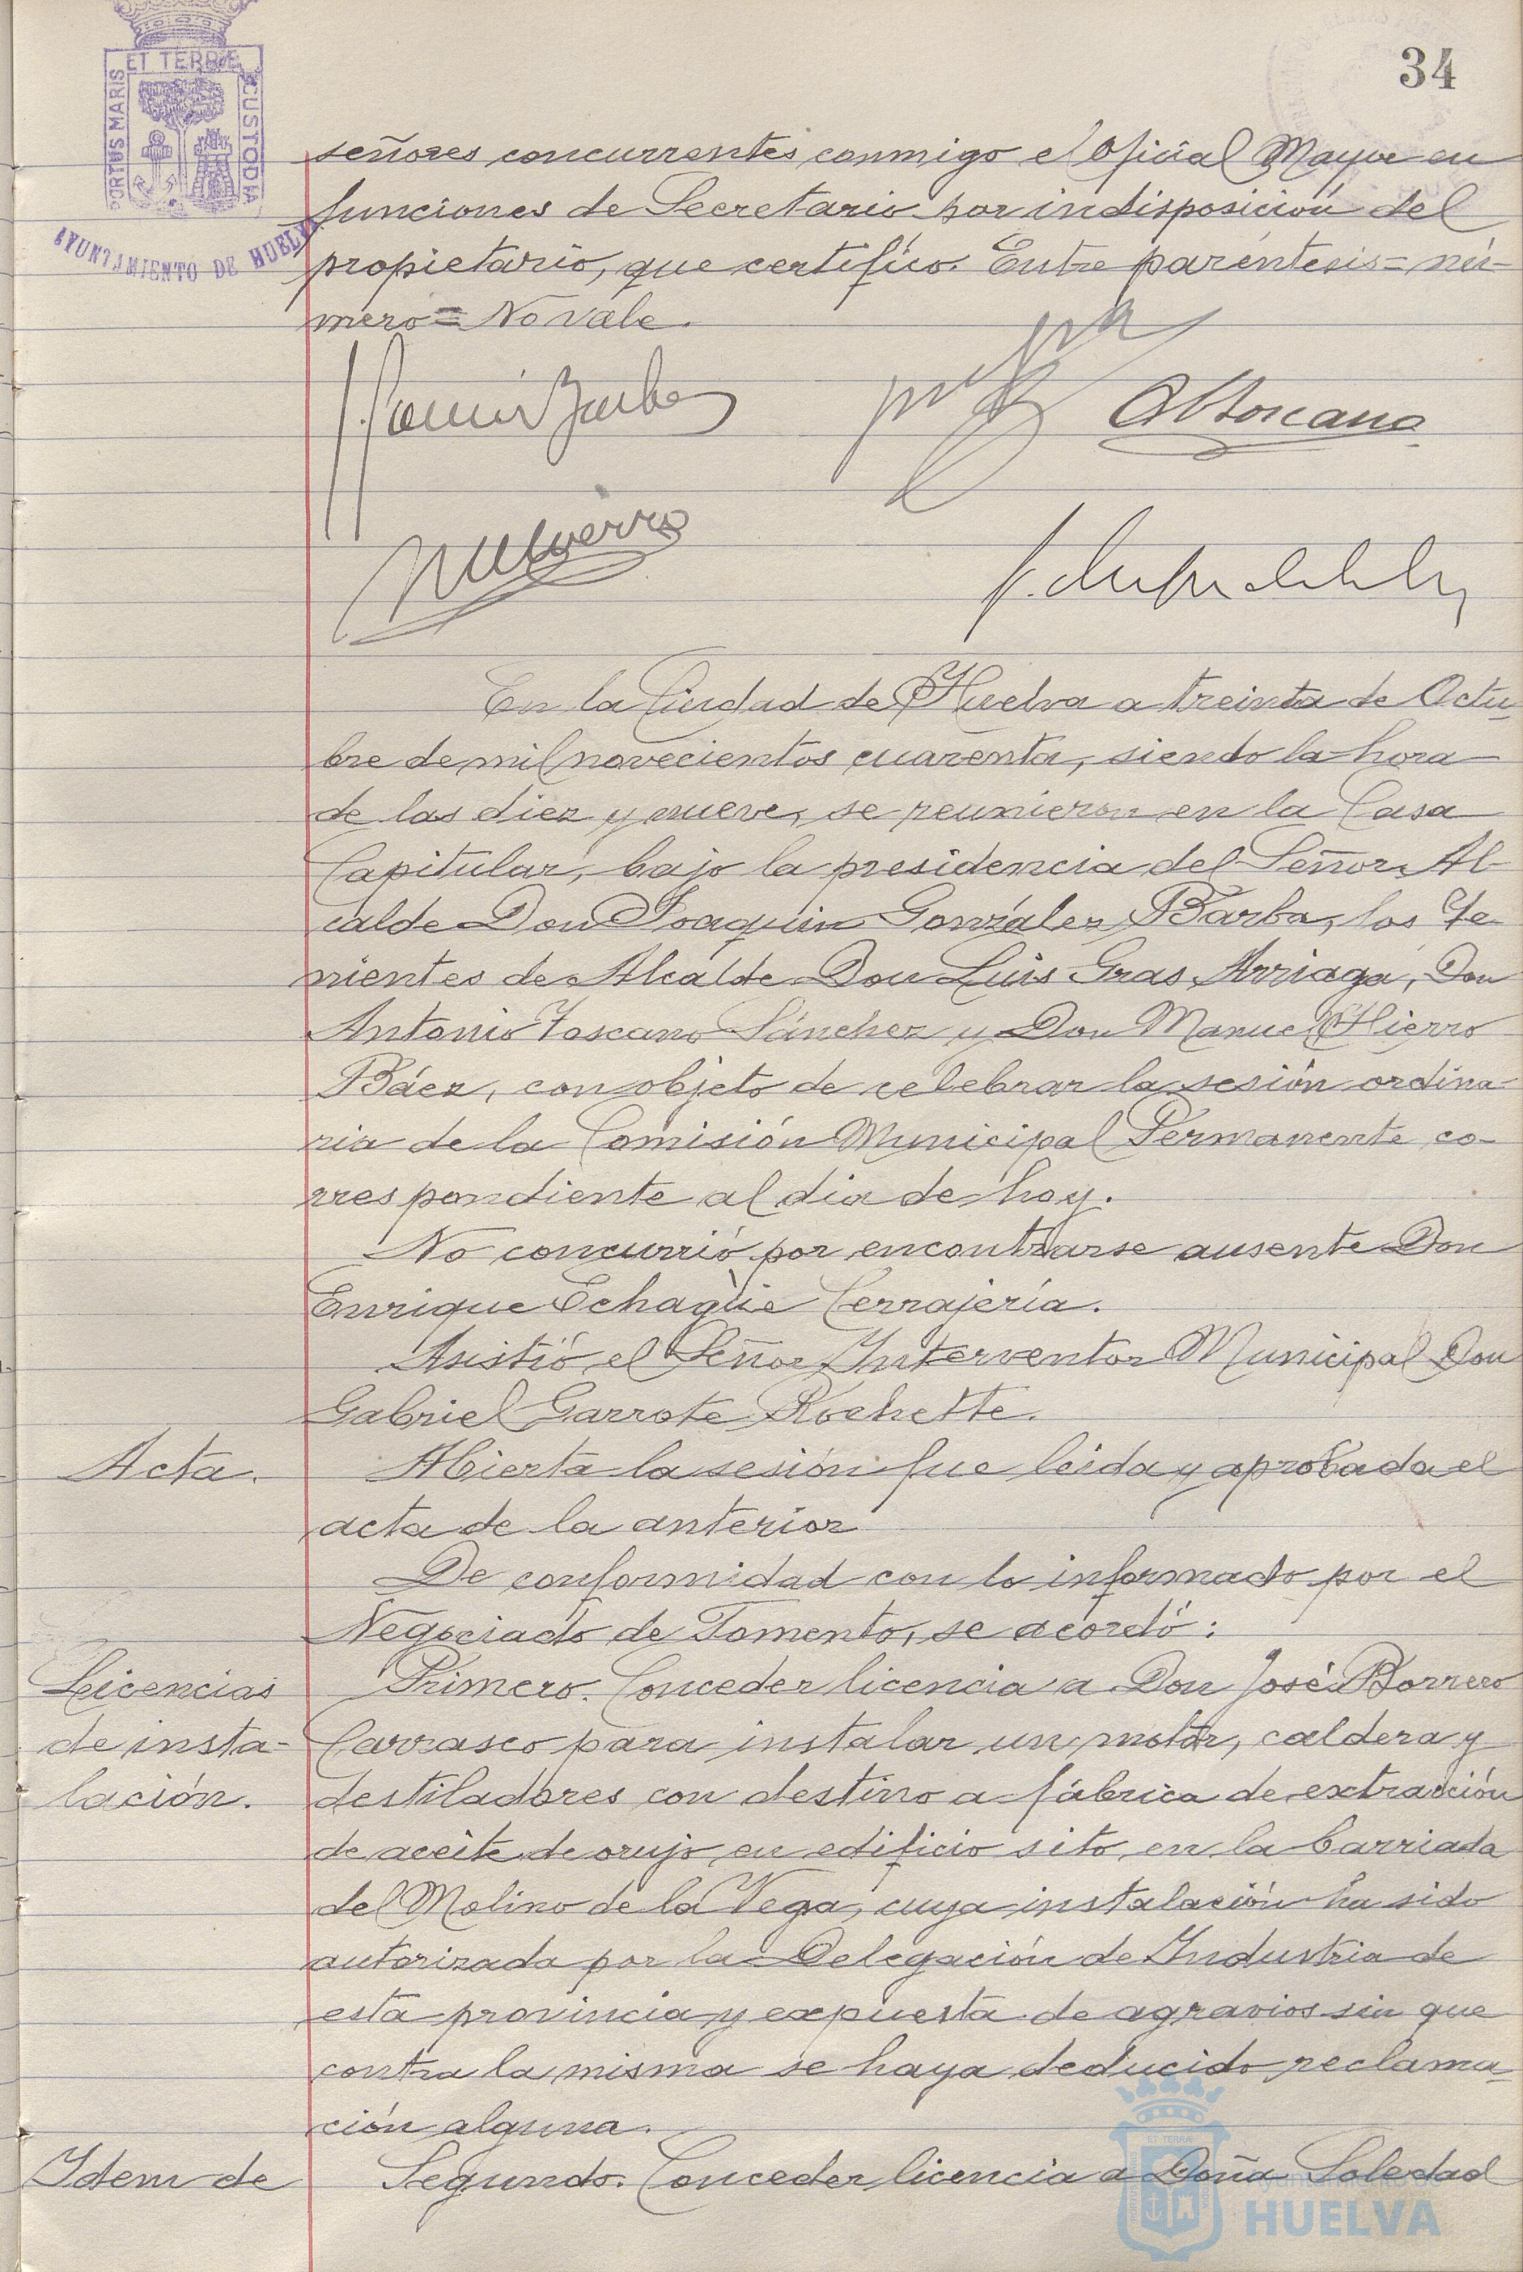 34
ET TERRÆ
PORTUS MARIS
CUSTODIA
AYUNTAMIENTO DE HUELVA
señores concurrentes conmigo el Oficial Mayor en
funciones de Secretario por indisposición del
propietario, que certifico. Entre paréntesis = nú-
mero = No vale.
En la Ciudad de Huelva a treinta de Octu-
bre de mil novecientos cuarenta, siendo la hora
de las diez y nueve, se reunieron en la Casa
Capitular, bajo la presidencia del Señor Al-
calde Don Joaquin González Barba, los Te-
nientes de Alcalde Don Luis Gras Arriaga, Don
Antonio Toscano Sánchez y Don Manuel Hierro
Báez, con objeto de celebrar la sesión ordina-
ria de la Comisión Municipal Permanente co-
rrespondiente al dia de hoy.
No concurrió por encontrarse ausente Don
Enrique Echagüe Cerrajería.
Asistió el Señor Interventor Municipal Don
Gabriel Garrote Rochette.
Acta. Abierta la sesión fue leida y aprobada el
acta de la anterior
De conformidad con lo informado por el
Negociado de Fomento, se acordó:
Licencias Primero. Conceder licencia a Don José Borrero
de insta- Carrasco para instalar un motor, caldera y
lación. destiladores con destino a fábrica de extracción
de aceite de orujo en edificio sito en la barriada
del Molino de la Vega, cuya instalación ha sido
autorizada por la Delegación de Industria de
esta provincia y expuesta de agravios sin que
contra la misma se haya deducido reclama-
ción alguna.
Idem de Segundo. Conceder licencia a Doña Soledad
Ayuntamiento de
HUELVA